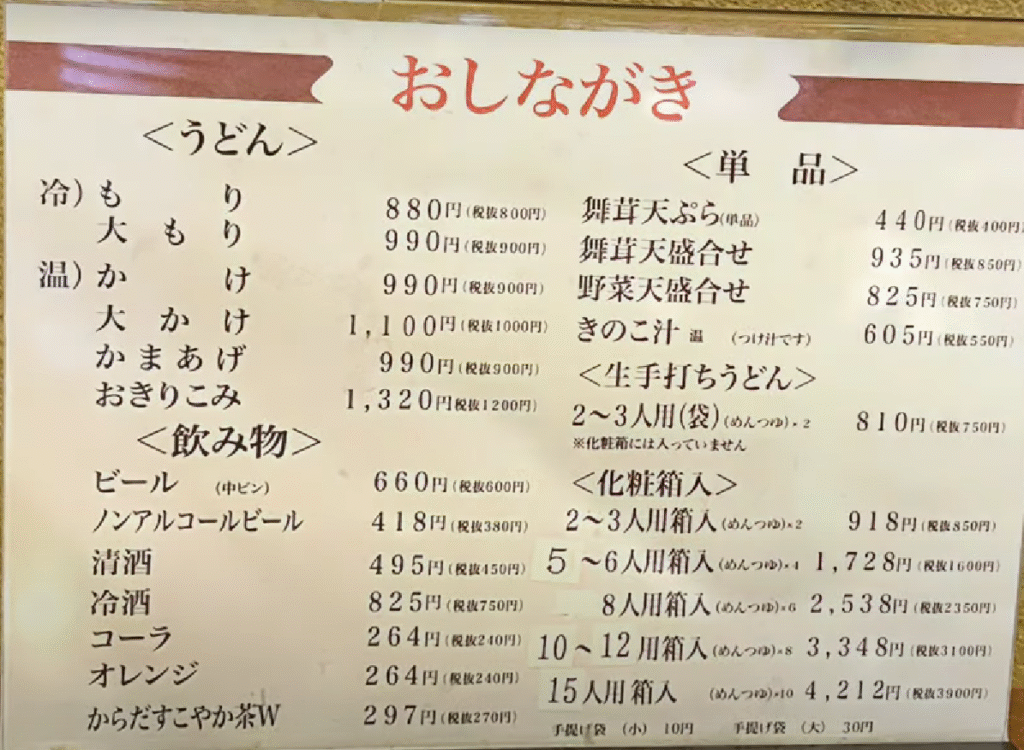 おしながき
<うどん>
冷)もり 880円(税抜800円)
大もり 990円(税抜900円)
温)かけ 990円(税抜900円)
大かけ 1,100円(税抜1000円)
かまあげ 990円(税抜900円)
おきりこみ 1,320円税抜1200円)
<飲み物>
ビール (中ビン) 660円(税抜600円)
ノンアルコールビール 418円(税抜380円)
清酒 495円(税抜450円)
冷酒 825円(税抜750円)
コーラ 264円(税抜240円)
オレンジ 264円(税抜240円)
からだすこやか茶W 297円(税抜270円)
<単品>
舞茸天ぷら(単品) 440円(税抜400円)
舞茸天盛合せ 935円(税抜850円)
野菜天盛合せ 825円(税抜750円)
きのこ汁 温 (つけ汁です) 605円(税抜550円)
<生手打ちうどん>
2~3人用(袋)(めんつゆ)×2 810円(税抜750円)
※化粧箱には入っていません
<化粧箱入>
2~3人用箱入(めんつゆ)×2 918円(税抜850円)
5~6人用箱入(めんつゆ)×4 1,728円(税抜1600円)
8人用箱入(めんつゆ)×6 2,538円(税抜2350円)
10~12用箱入(めんつゆ)×8 3,348円(税抜3100円)
15人用箱入 (めんつゆ)×10 4,212円(税抜3900円)
手提げ袋 (小) 10円 手提げ袋 (大) 30円